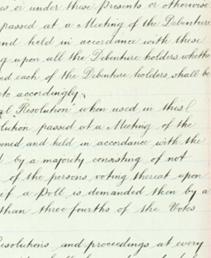 es or under these Presents or otherwise
passed at a Meeting of the Debenture
and held in accordance with these
g upon all the Debenture holders, whether
and each of the Debenture holders shall be
to accordingly.
l Resolution" when used in this
lution passed at a Meeting of the
ened and held in accordance with the
d by a majority consisting of not
of the persons voting thereat upon
if a Poll is demanded then by a
than three fourths of the Votes
esolutions and proceedings at every